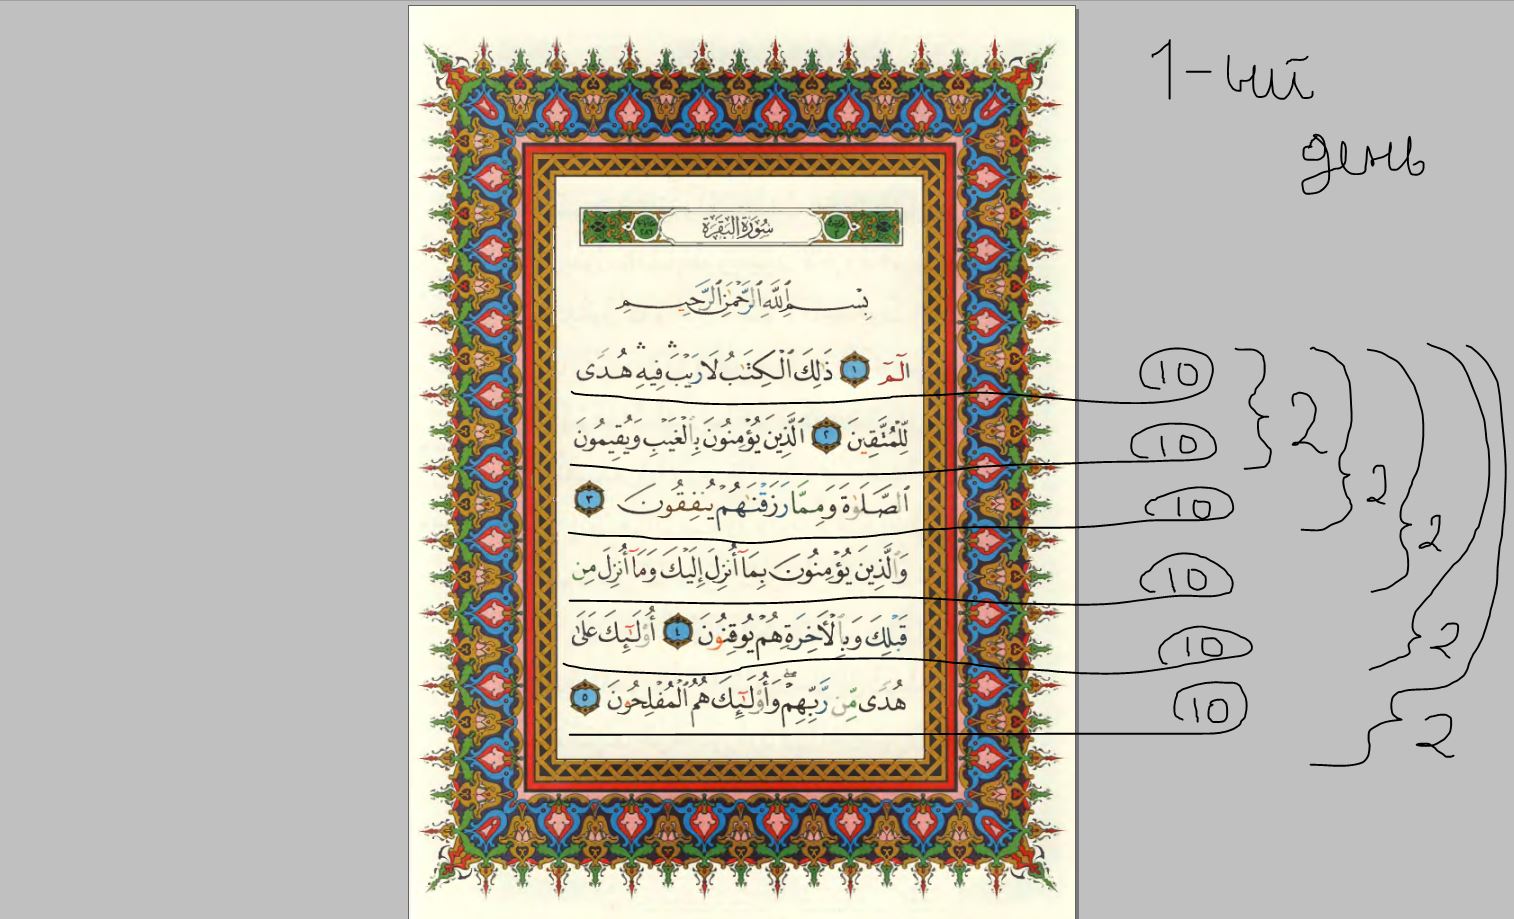 1-ый
день
سُورَةُ البَقَرَةِ
بِسْمِ ٱللَّهِ ٱلرَّحْمَٰنِ ٱلرَّحِيمِ
الٓمٓ ١ ذَٰلِكَ ٱلْكِتَٰبُ لَا رَيْبَ ۛ فِيهِ ۛ هُدًى
10
2
لِّلْمُتَّقِينَ ٢ ٱلَّذِينَ يُؤْمِنُونَ بِٱلْغَيْبِ وَيُقِيمُونَ
10
2
ٱلصَّلَوٰةَ وَمِمَّا رَزَقْنَٰهُمْ يُنفِقُونَ ٣
10
2
وَٱلَّذِينَ يُؤْمِنُونَ بِمَآ أُنزِلَ إِلَيْكَ وَمَآ أُنزِلَ مِن
10
قَبْلِكَ وَبِٱلْأَخِرَةِ هُمْ يُوقِنُونَ ٤ أُو۟لَٰٓئِكَ عَلَىٰ
10
2
هُدًى مِّن رَّبِّهِمْ ۖ وَأُو۟لَٰٓئِكَ هُمُ ٱلْمُفْلِحُونَ ٥
10
2